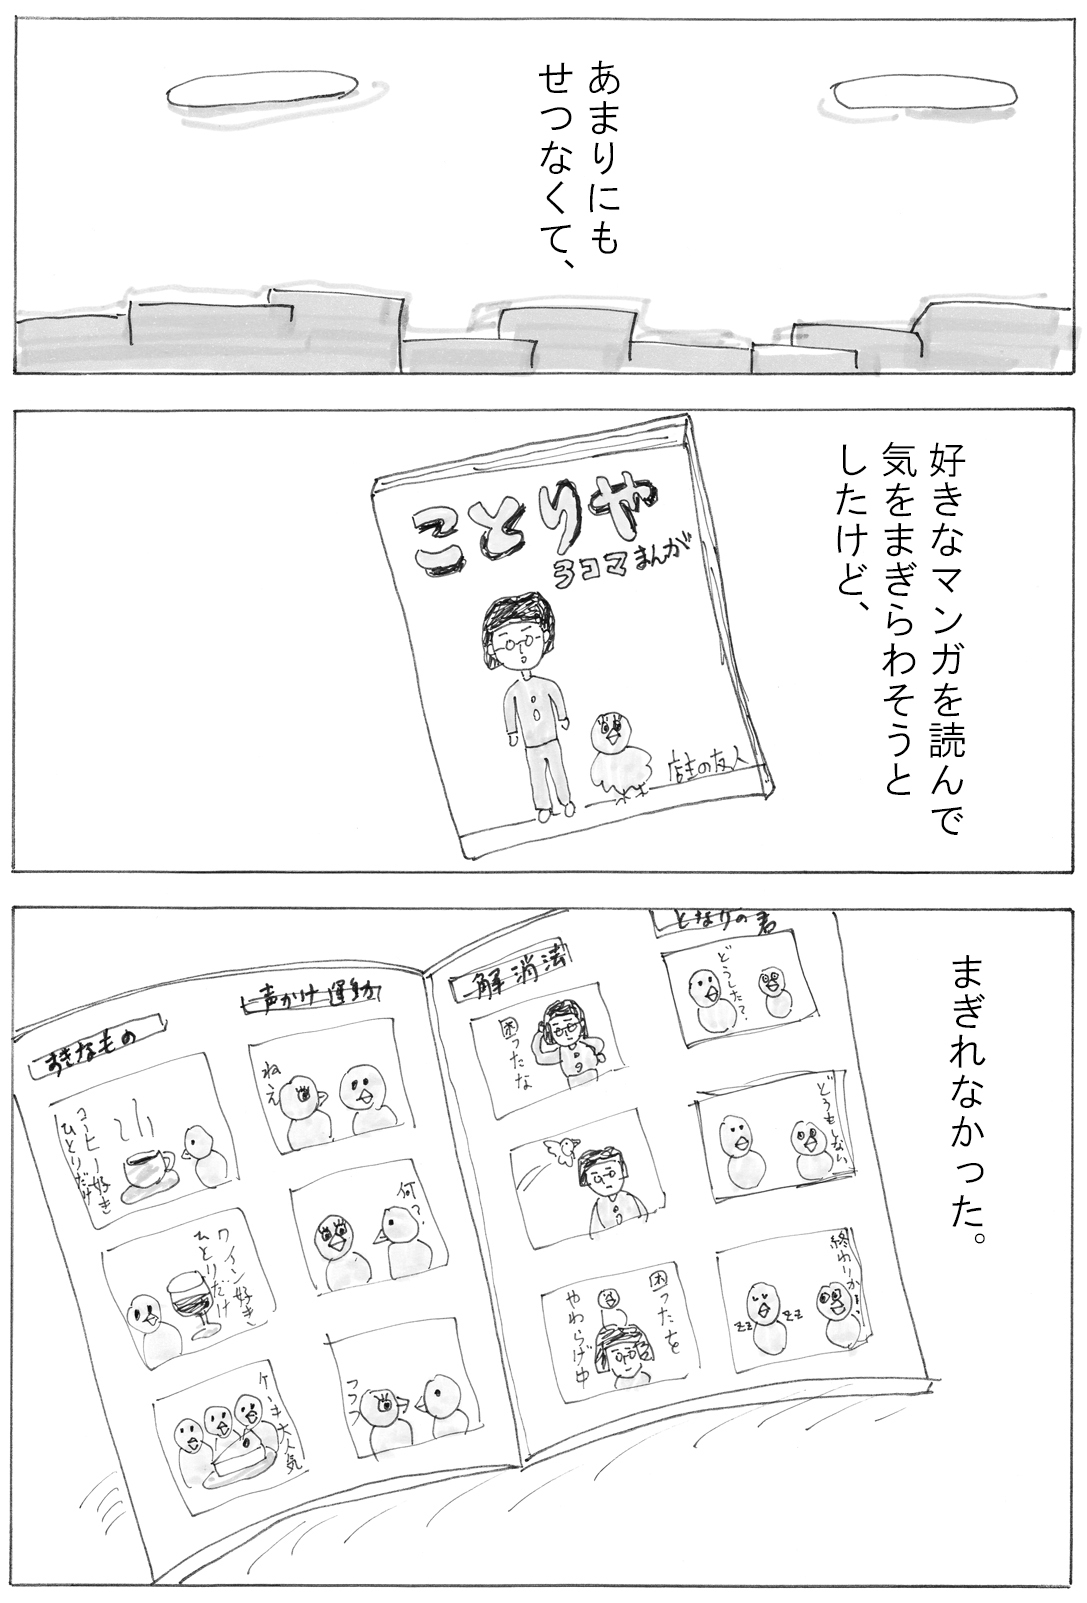 あまりにも
せつなくて、
好きなマンガを読んで
気をまぎらわそうと
したけど、
ことりや
3コマまんが
店主の友人
まぎれなかった。
となりの君
どうした?
どうもしない
終わりかい
zz
zz
解消法
困ったな
困ったを
やわらげ中
声かけ運動
ねえ
何?
フフフ
すきなもの
コーヒー好き
ひとりだけ
ワイン好き、
ひとりだけ
ケーキ大人気